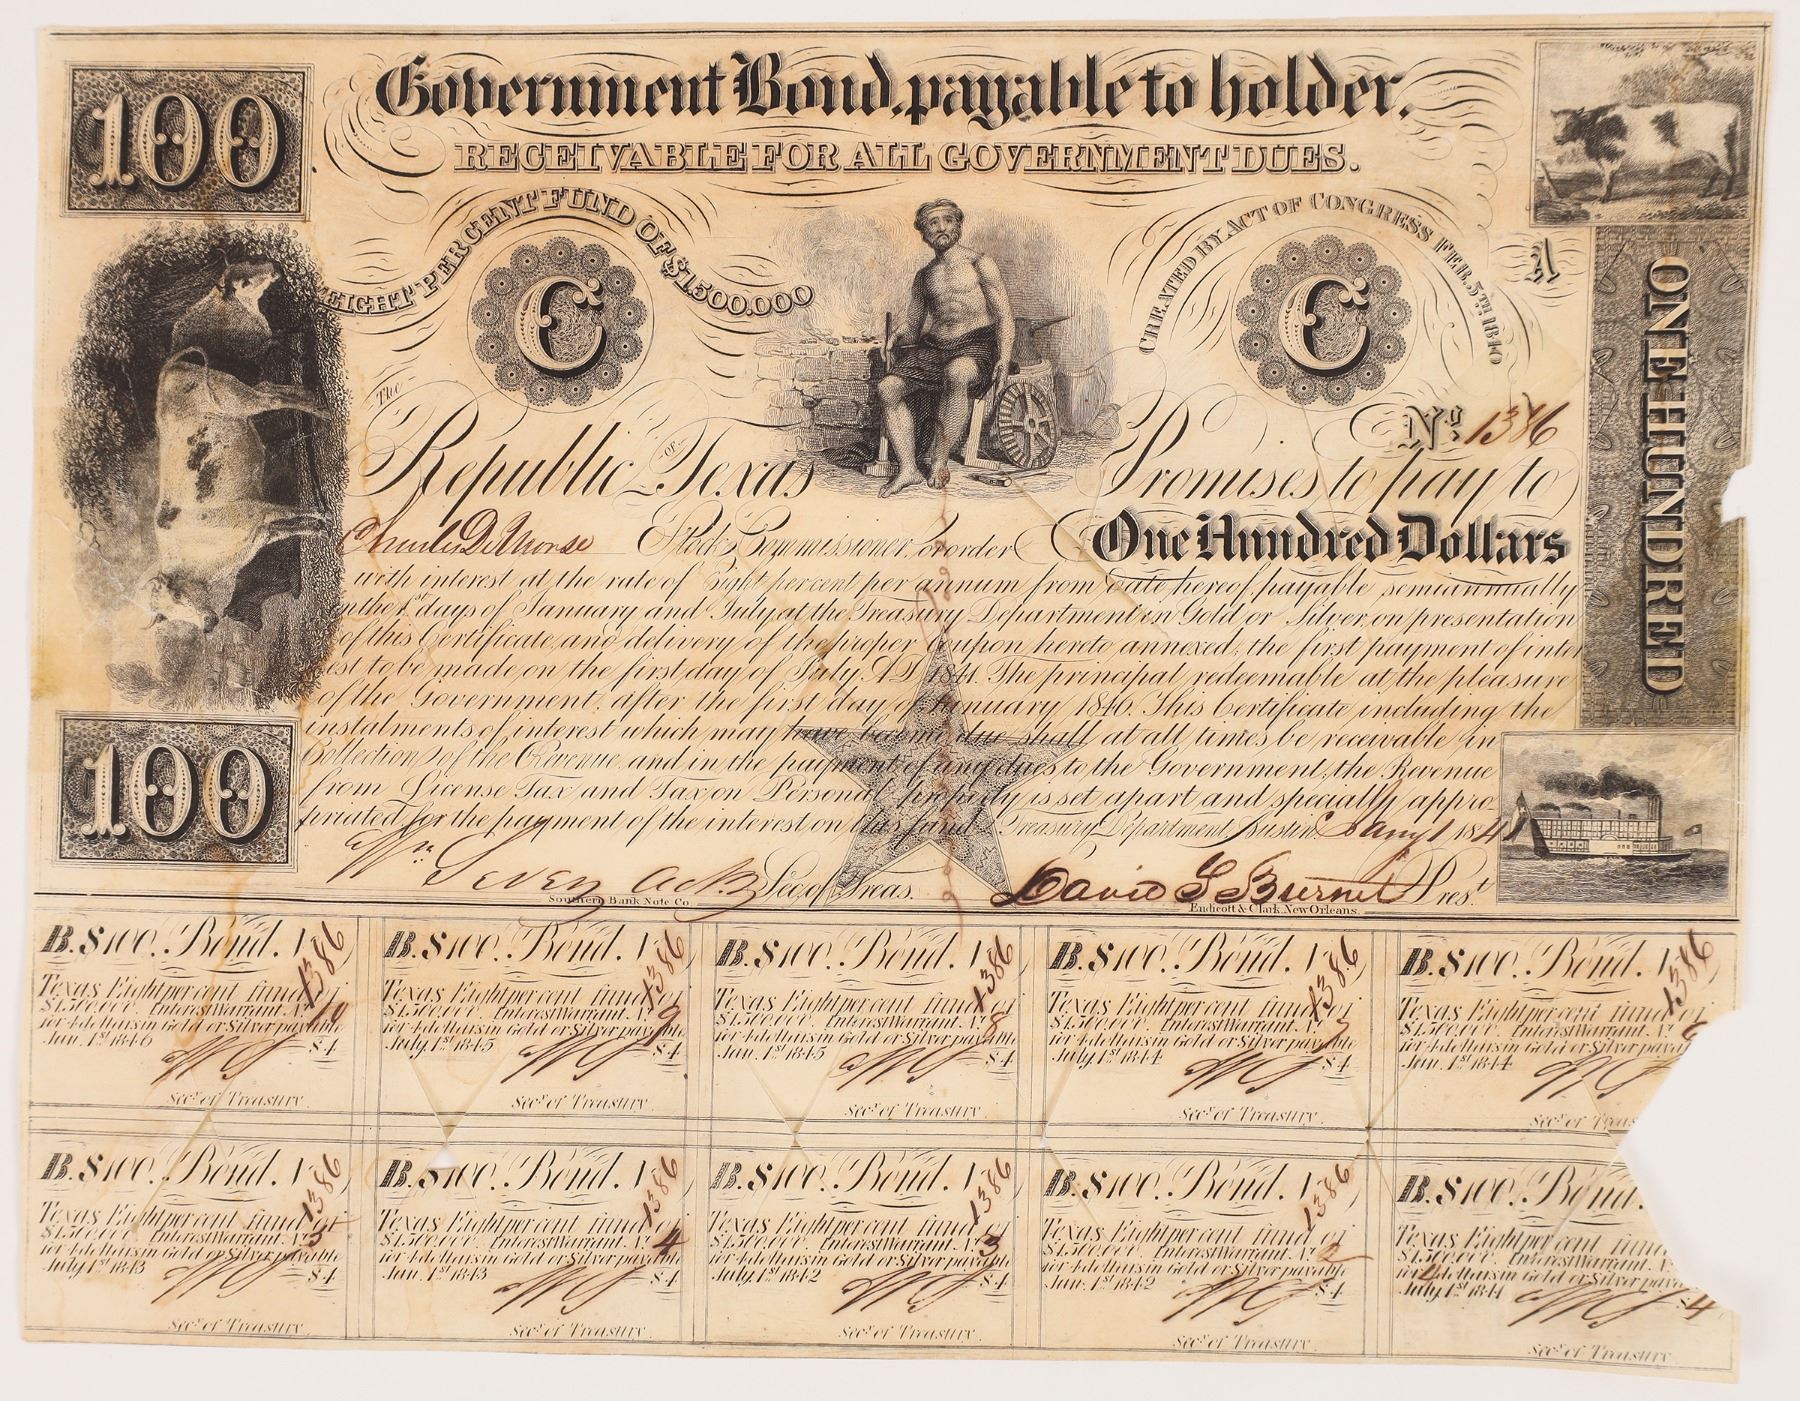 Government Bond, payable to holder.
RECEIVABLE FOR ALL GOVERNMENT DUES.
100
EIGHT PER CENT FUND OF $1,500.000
C
CREATED BY ACT OF CONGRESS FEB. 5TH 1840
C
A
ONE HUNDRED
No. 1386
The Republic OF Texas Promises to pay to
Charles DeMorse Stock Commissioner, or order One Hundred Dollars
with interest at the rate of Eight percent per annum from date hereof, payable semiannually
on the 1st days of January and July, at the Treasury Department in Gold or Silver, on presentation
of this Certificate, and delivery of the proper Coupon hereto annexed; the first payment of inter
est to be made on the first day of July A.D. 1841. The principal redeemable at the pleasure
of the Government, after the first day of January 1846. This Certificate including the
instalments of interest which may have become due shall at all times be receivable in
Collection of the Revenue, and in the payment of any dues to the Government, the Revenue
from License Tax and Tax on Personal property is set apart and specially appro
priated for the payment of the interest on this fund. Treasury Department, Austin Jany 1 1841
100
Sec. of Treas.
David G Burnet Prest
Southern Bank Note Co.
Endicott & Clark, New Orleans.
B. $100. Bond. N 1386
Texas Eight per cent fund of
$1,500,000. Interest Warrant No. 10
for 4 dollars in Gold or Silver payable
Jan. 1st 1846 $4
Secy. of Treasury.
B. $100. Bond. N 1386
Texas Eight per cent fund of
$1,500,000. Interest Warrant No. 9
for 4 dollars in Gold or Silver payable
July 1st 1845 $4
Secy. of Treasury.
B. $100. Bond. N 1386
Texas Eight per cent fund of
$1,500,000. Interest Warrant No. 8
for 4 dollars in Gold or Silver payable
Jan. 1st 1845 $4
Secy. of Treasury.
B. $100. Bond. N 1386
Texas Eight per cent fund of
$1,500,000. Interest Warrant No. 7
for 4 dollars in Gold or Silver payable
July 1st 1844 $4
Secy. of Treasury.
B. $100. Bond. 1386
Texas Eight per cent fund of
$1,500,000. Interest Warrant No. 6
for 4 dollars in Gold or Silver paya
Jan. 1st 1844
Secy. of Treas
B. $100. Bond. N 1386
Texas Eight per cent fund of
$1,500,000. Interest Warrant No. 5
for 4 dollars in Gold or Silver payable
July 1st 1843 $4
Secy. of Treasury.
B. $100. Bond. N 1386
Texas Eight per cent fund of
$1,500,000. Interest Warrant No. 4
for 4 dollars in Gold or Silver payable
Jan. 1st 1843 $4
Secy. of Treasury.
B. $100. Bond. N 1386
Texas Eight per cent fund of
$1,500,000. Interest Warrant No. 3
for 4 dollars in Gold or Silver payable
July 1st 1842 $4
Secy. of Treasury.
B. $100. Bond. N 1386
Texas Eight per cent fund of
$1,500,000. Interest Warrant No. 2
for 4 dollars in Gold or Silver payable
Jan. 1st 1842 $4
Secy. of Treasury.
B. $100. Bond.
Texas Eight per cent fund
$1,500,000. Interest Warrant N
for 4 dollars in Gold or Silver paya
July 1st 1841 $4
Secy. of Treasury.